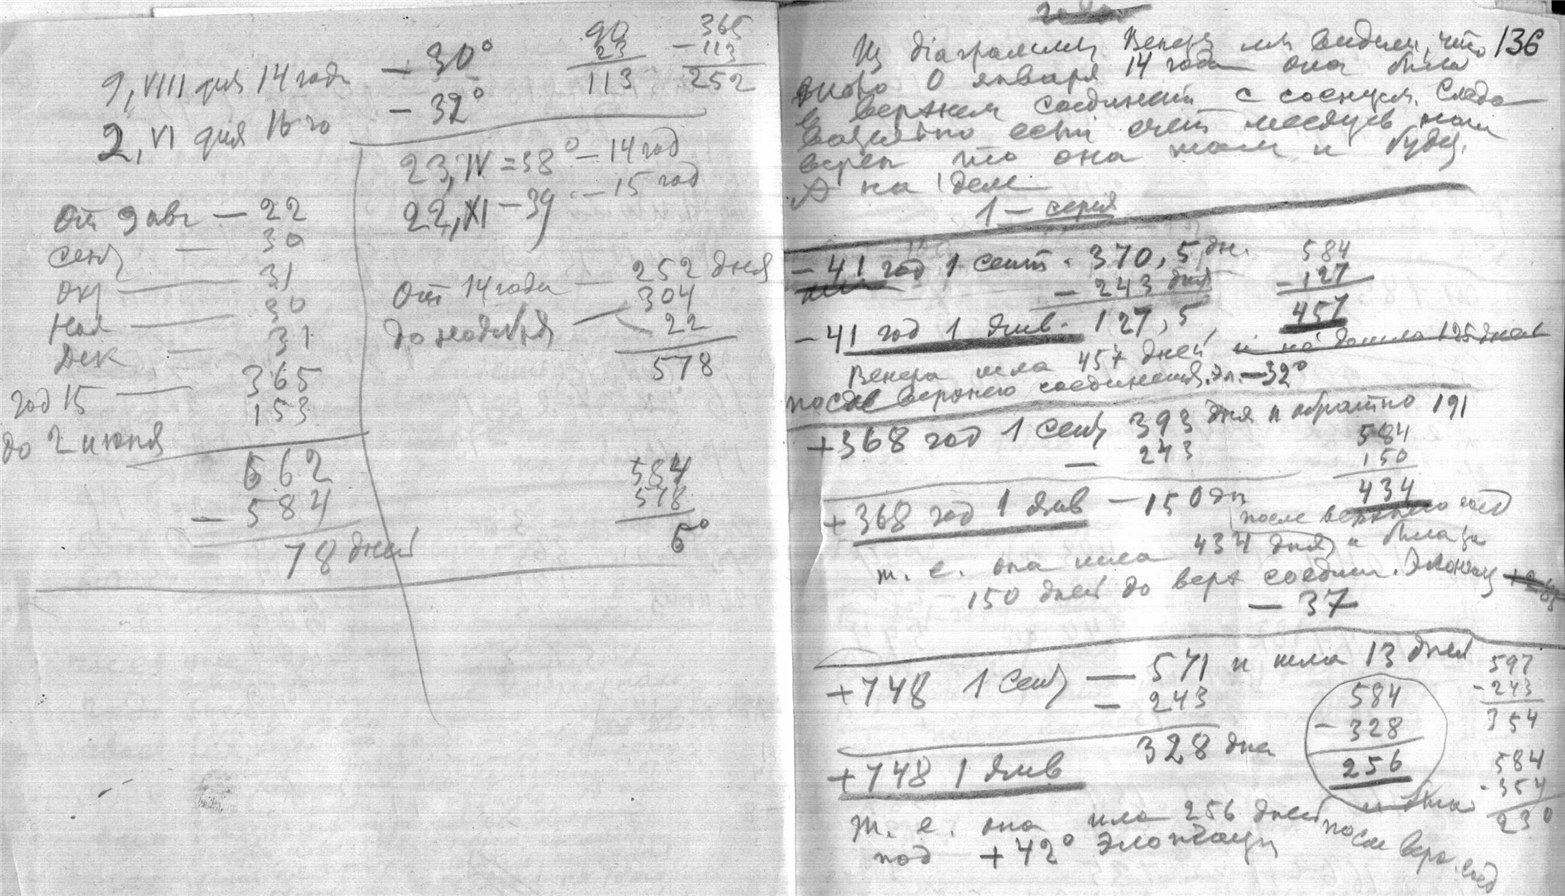 9, VIII дня 14 года — 30°
2, VI дня 16 го — 32°
90
23
113
365
— 113
252
23, IV = 38° — 14 год
22, XI — 39 — 15 год
От 9 авг — 22
сент — 30
окт — 31
ноя — 30
дек — 31
год 15 — 365
до 2 июня 153
662
— 584
78 дней
От 14 года — 252 дня
304
до ноября — 22
578
584
578
6°
136
Из діаграммы Венеры мы видим, что
около 0 января 14 года она была
в верхнем соединении с солнцем. Следо
вательно если счет месяцев нам
верен что она там и будет.
А на деле
1 — серия
— 41 год 1 сент. 370,5 дн.
— 243 дня
— 41 год 1 янв. 127,5
584
— 127
457
Венера шла 457 дней и не дошла 125 дней
после верхнего соединения. Эл. — 32°
+368 год 1 сент 393 дня и обратно 191
— 243
584
150
434
+368 год 1 янв — 150 дн
после верхнего соед
т. е. она шла 434 дня и была за
150 дней до верх соедин. Элонгац
— 37
+748 1 сент — 571 и шла 13 дней
— 243
328 дня
584
— 328
256
597
— 243
354
584
— 354
230
+748 1 янв
т. е. она шла 256 дней после верх. соед
под +42° Элонгации